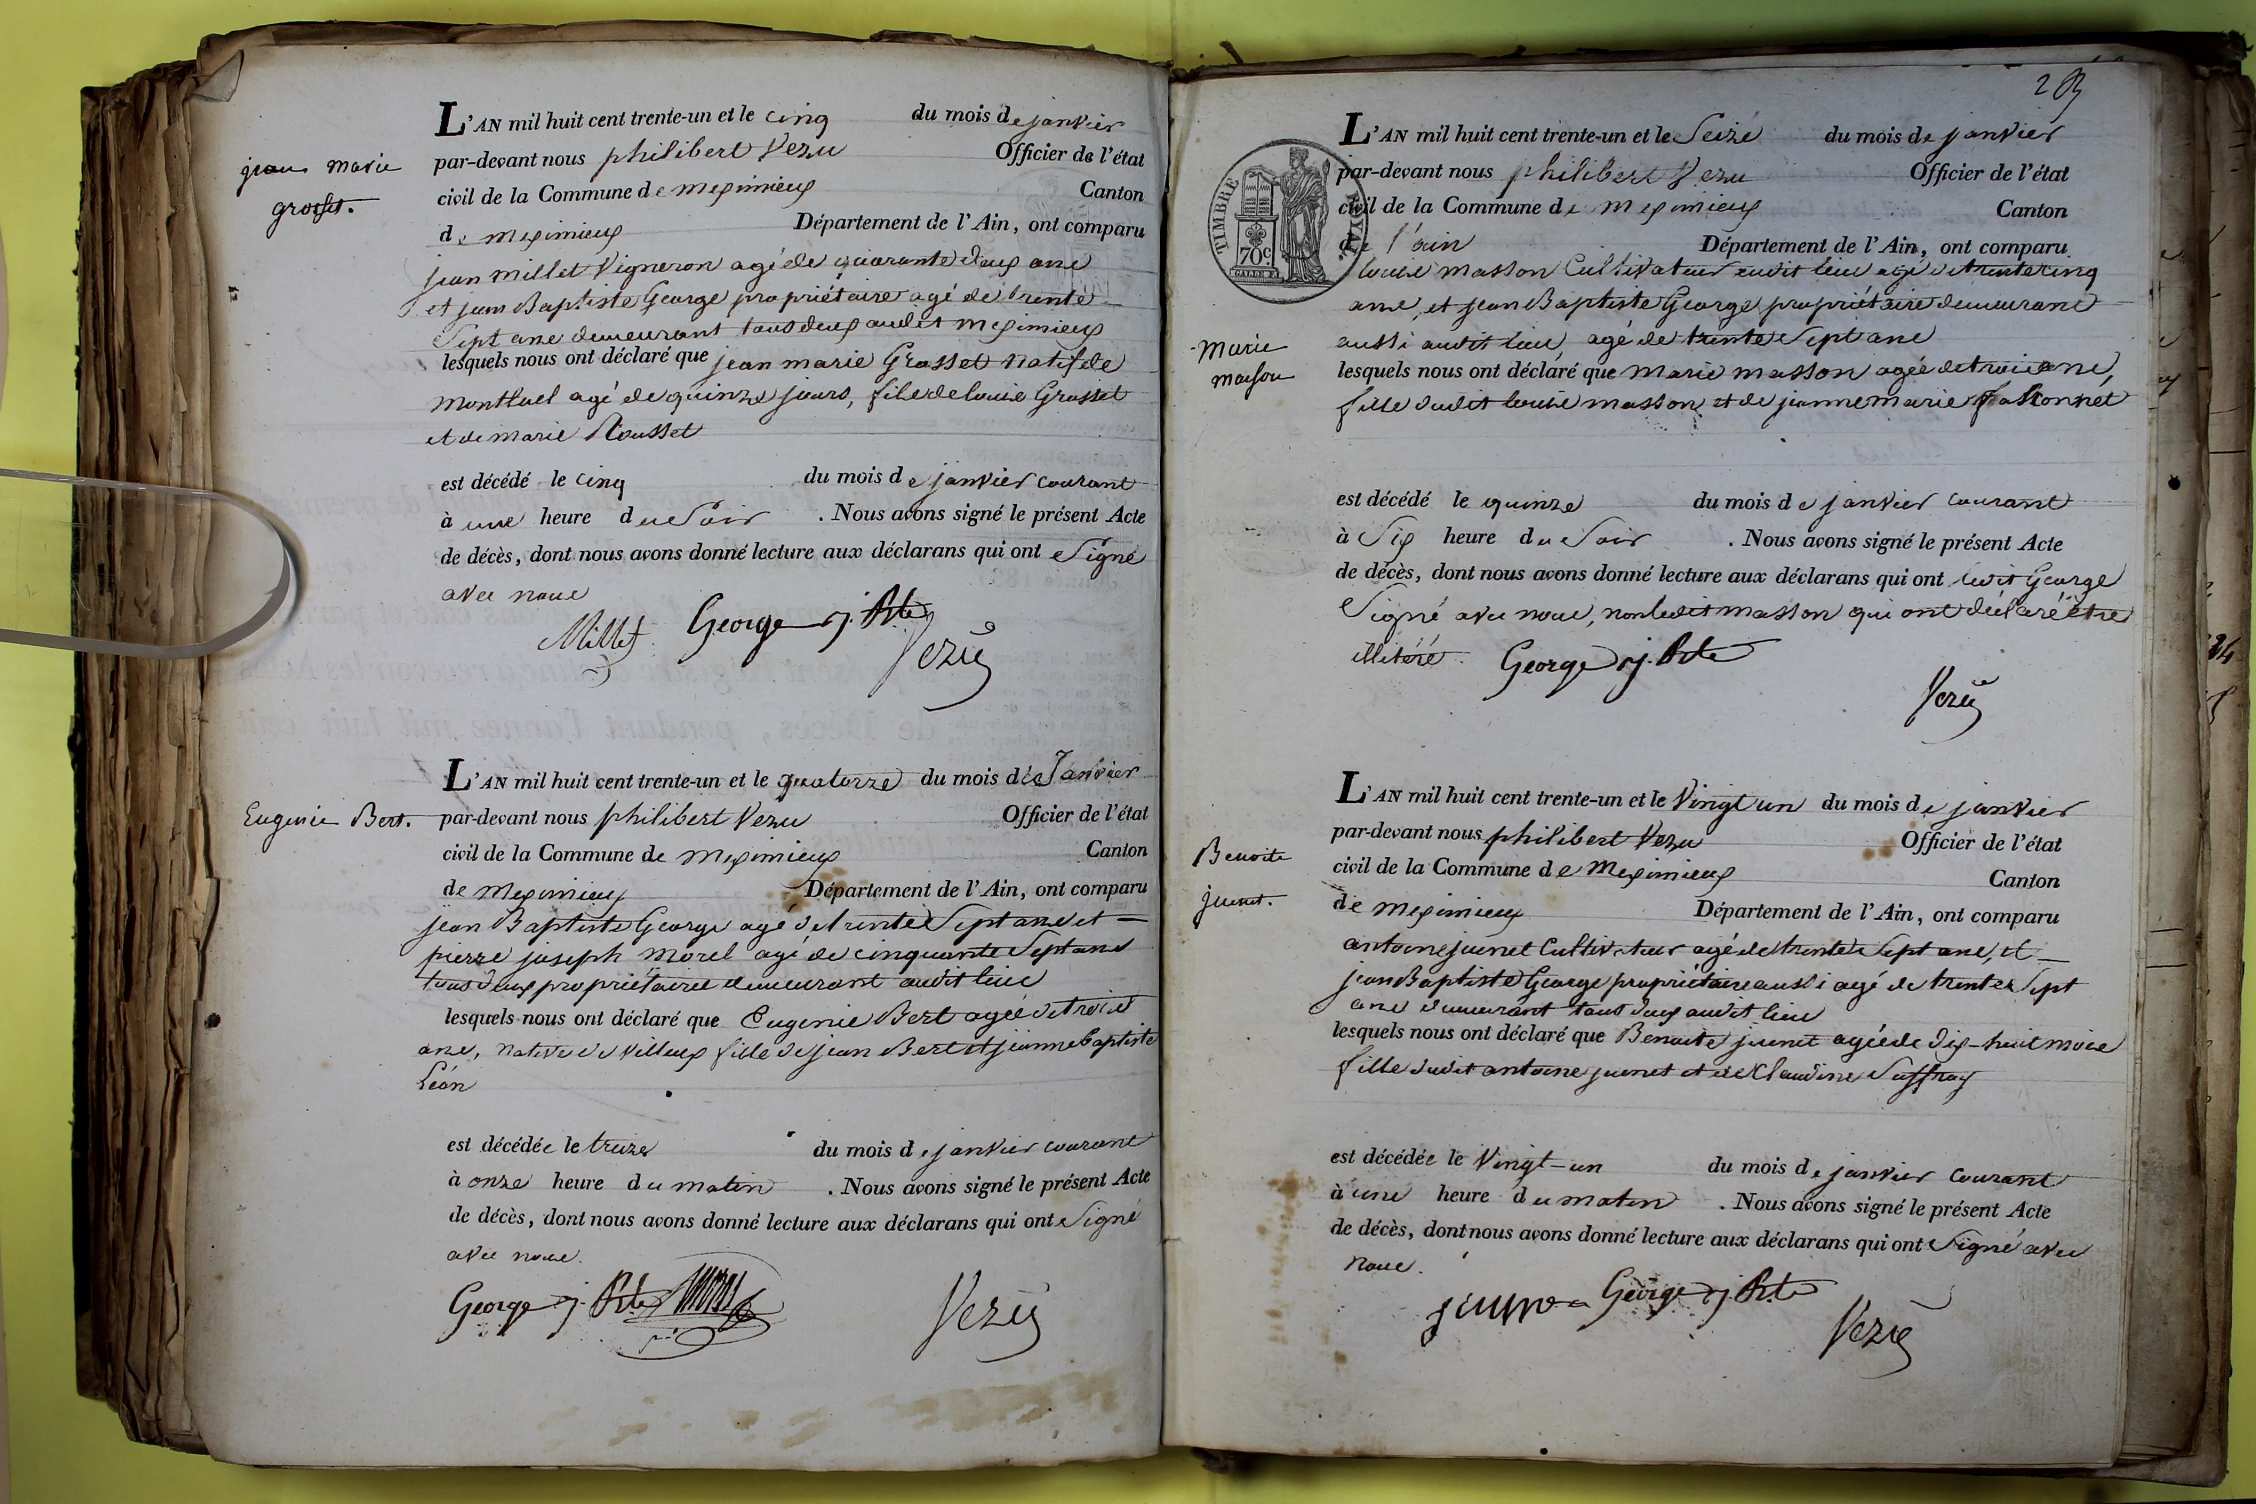 jean marie
grosset.
L'AN mil huit cent trente-un et le cinq du mois de janvier
par-devant nous philibert Vezu Officier de l'état
civil de la Commune de meximieux Canton
de meximieux Département de l'Ain, ont comparu
jean millet Vigneron agé de quarante deux ans
et jean Baptiste George propriétaire agé de trente
Sept ans demeurant tous deux audit meximieux
lesquels nous ont déclaré que jean marie Grosset natif de
montluel agé de quinze jours, fils de louis Grosset
et de marie Rousset
est décédé le cinq du mois de janvier courant
à une heure du Soir . Nous avons signé le présent Acte
de décès, dont nous avons donné lecture aux déclarans qui ont Signé
avec nous
Millet George j. Bte
Vezu
Eugenie Bert.
L'AN mil huit cent trente-un et le quatorze du mois de Janvier
par-devant nous philibert Vezu Officier de l'état
civil de la Commune de meximieux Canton
de meximieux Département de l'Ain, ont comparu
jean Baptiste George agé de trente Sept ans et
pierre joseph morel agé de cinquante Sept ans
tous deux propriétaires demeurant audit lieu
lesquels nous ont déclaré que Eugenie Bert agée de trois
ans, native de villieux fille de jean Bert et jeanne baptiste
Léon
est décédée le treize du mois de janvier courant
à onze heure du matin . Nous avons signé le présent Acte
de décès, dont nous avons donné lecture aux déclarans qui ont Signé
avec nous.
George j. Bte Morel Vezu
TIMBRE ROYAL
70c.
L'AN mil huit cent trente-un et le Seize du mois de janvier
par-devant nous philibert Vezu Officier de l'état
civil de la Commune de meximieux Canton
de l'ain Département de l'Ain, ont comparu
louis masson Cultivateur audit lieu agé de trente cinq
ans, et jean Baptiste George propriétaire demeurant
aussi audit lieu agé de trente Sept ans
Marie
masson
lesquels nous ont déclaré que marie masson agée de trois ans,
fille dudit louis masson et de jeanne marie
est décédé le quinze du mois de janvier courant
à Six heure du Soir . Nous avons signé le présent Acte
de décès, dont nous avons donné lecture aux déclarans qui ont ledit George
Signé avec nous, non ledit masson qui ont déclaré être
illitéré. George j. Bte
Vezu
Benoite
juenet.
L'AN mil huit cent trente-un et le Vingt un du mois de janvier
par-devant nous philibert Vezu Officier de l'état
civil de la Commune de Meximieux Canton
de meximieux Département de l'Ain, ont comparu
antoine juenet Cultivateur agé de trente Sept ans, et
jean Baptiste George propriétaire aussi agé de trente Sept
ans demeurant tous deux audit lieu
lesquels nous ont déclaré que Benoite juenet agée de dix-huit mois
fille dudit antoine juenet et de Claudine
est décédée le Vingt-un du mois de janvier courant
à une heure du matin . Nous avons signé le présent Acte
de décès, dont nous avons donné lecture aux déclarans qui ont Signé avec
nous.
George j. Bte
Vezu